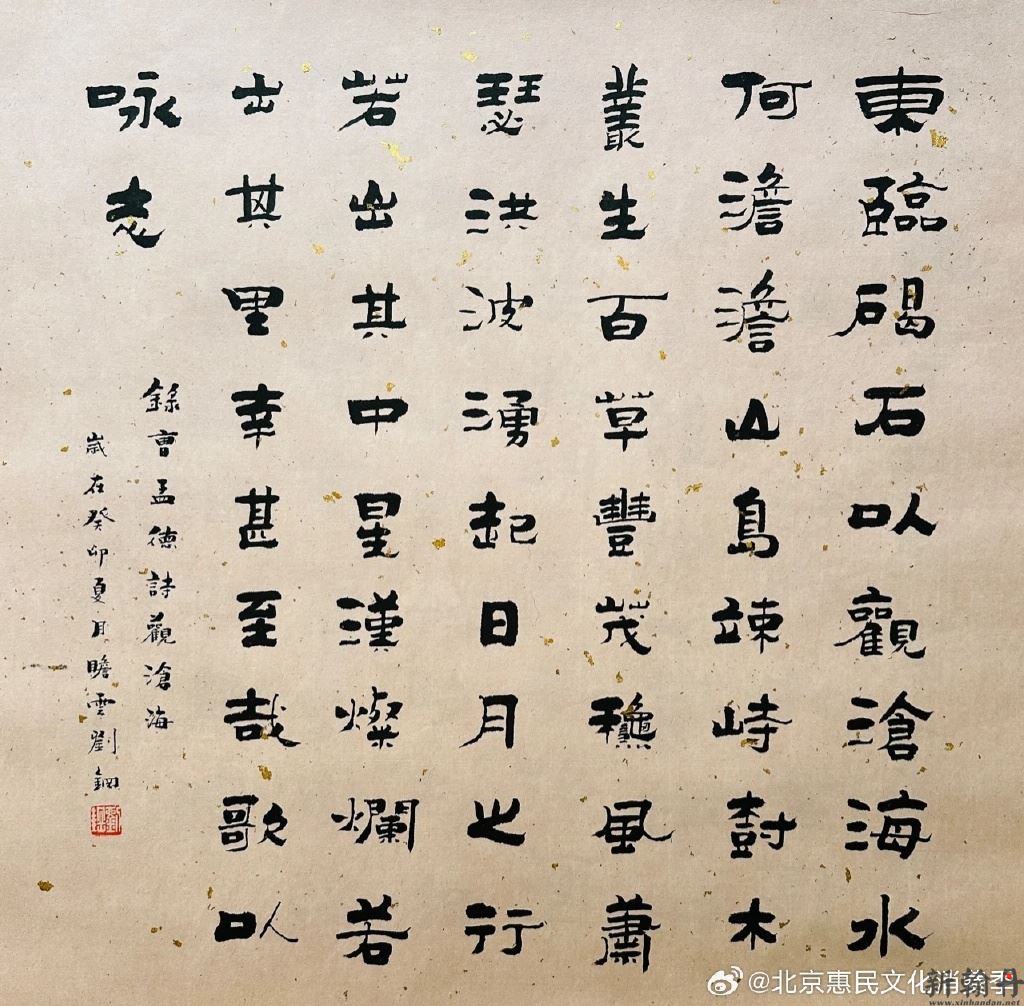 東臨碣石以觀滄海水
何澹澹山島竦峙樹木
叢生百草豐茂龝風蕭
瑟洪波湧起日月之行
若出其中星漢燦爛若
出其里幸甚至哉歌以
咏志
錄曹孟德詩觀滄海
歲在癸卯夏月瞻雲劉鋼
@北京惠民文化消费季
新翰丹
www.xinhandan.net